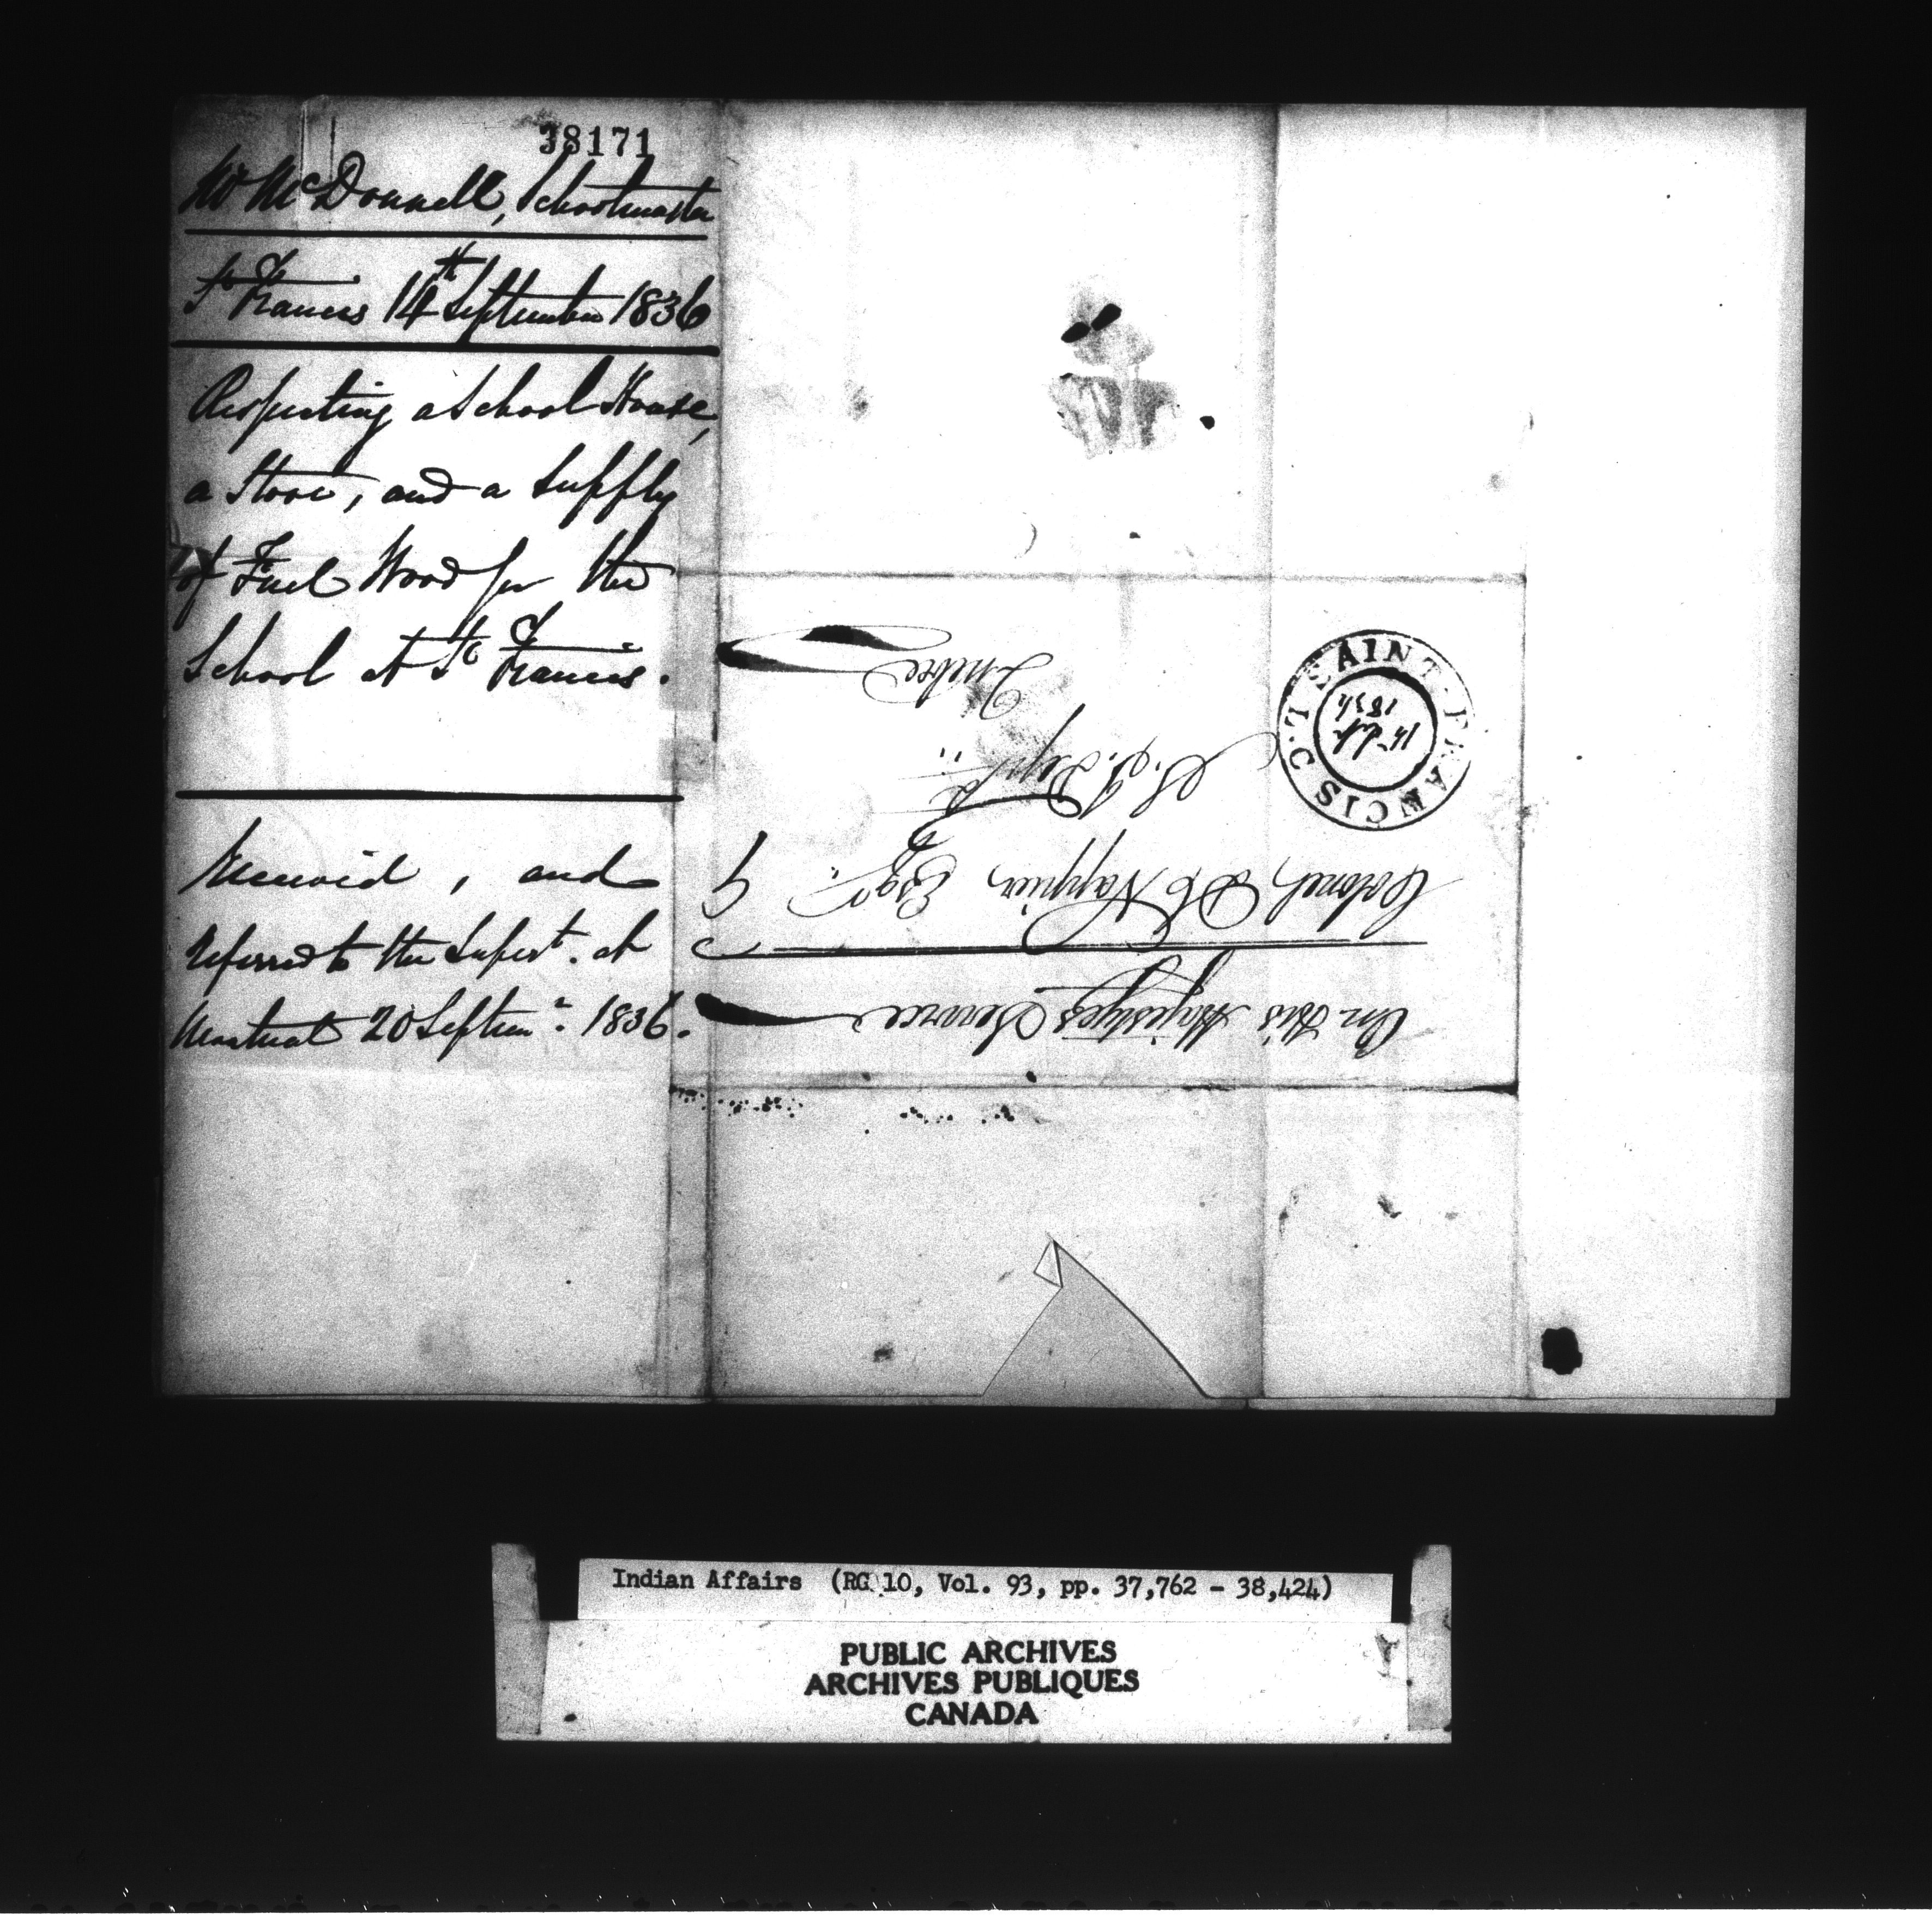 38171
Mr McDonnell, Schoolmaster
St Francis 14th September 1836
Respecting a School House,
a Stove, and a Supply
of Fuel Wood for the
School at St Francis.
Received, and
referred to the Supert. at
Montreal 20 Septemr. 1836.
On His Majestys Service
Colonel D C Napier Esqr.
S. I. Dept.
Quebec
SAINT FRANCIS L.C.
14 Sept
1836
Indian Affairs (RG 10, Vol. 93, pp. 37,762 - 38,424)
PUBLIC ARCHIVES
ARCHIVES PUBLIQUES
CANADA